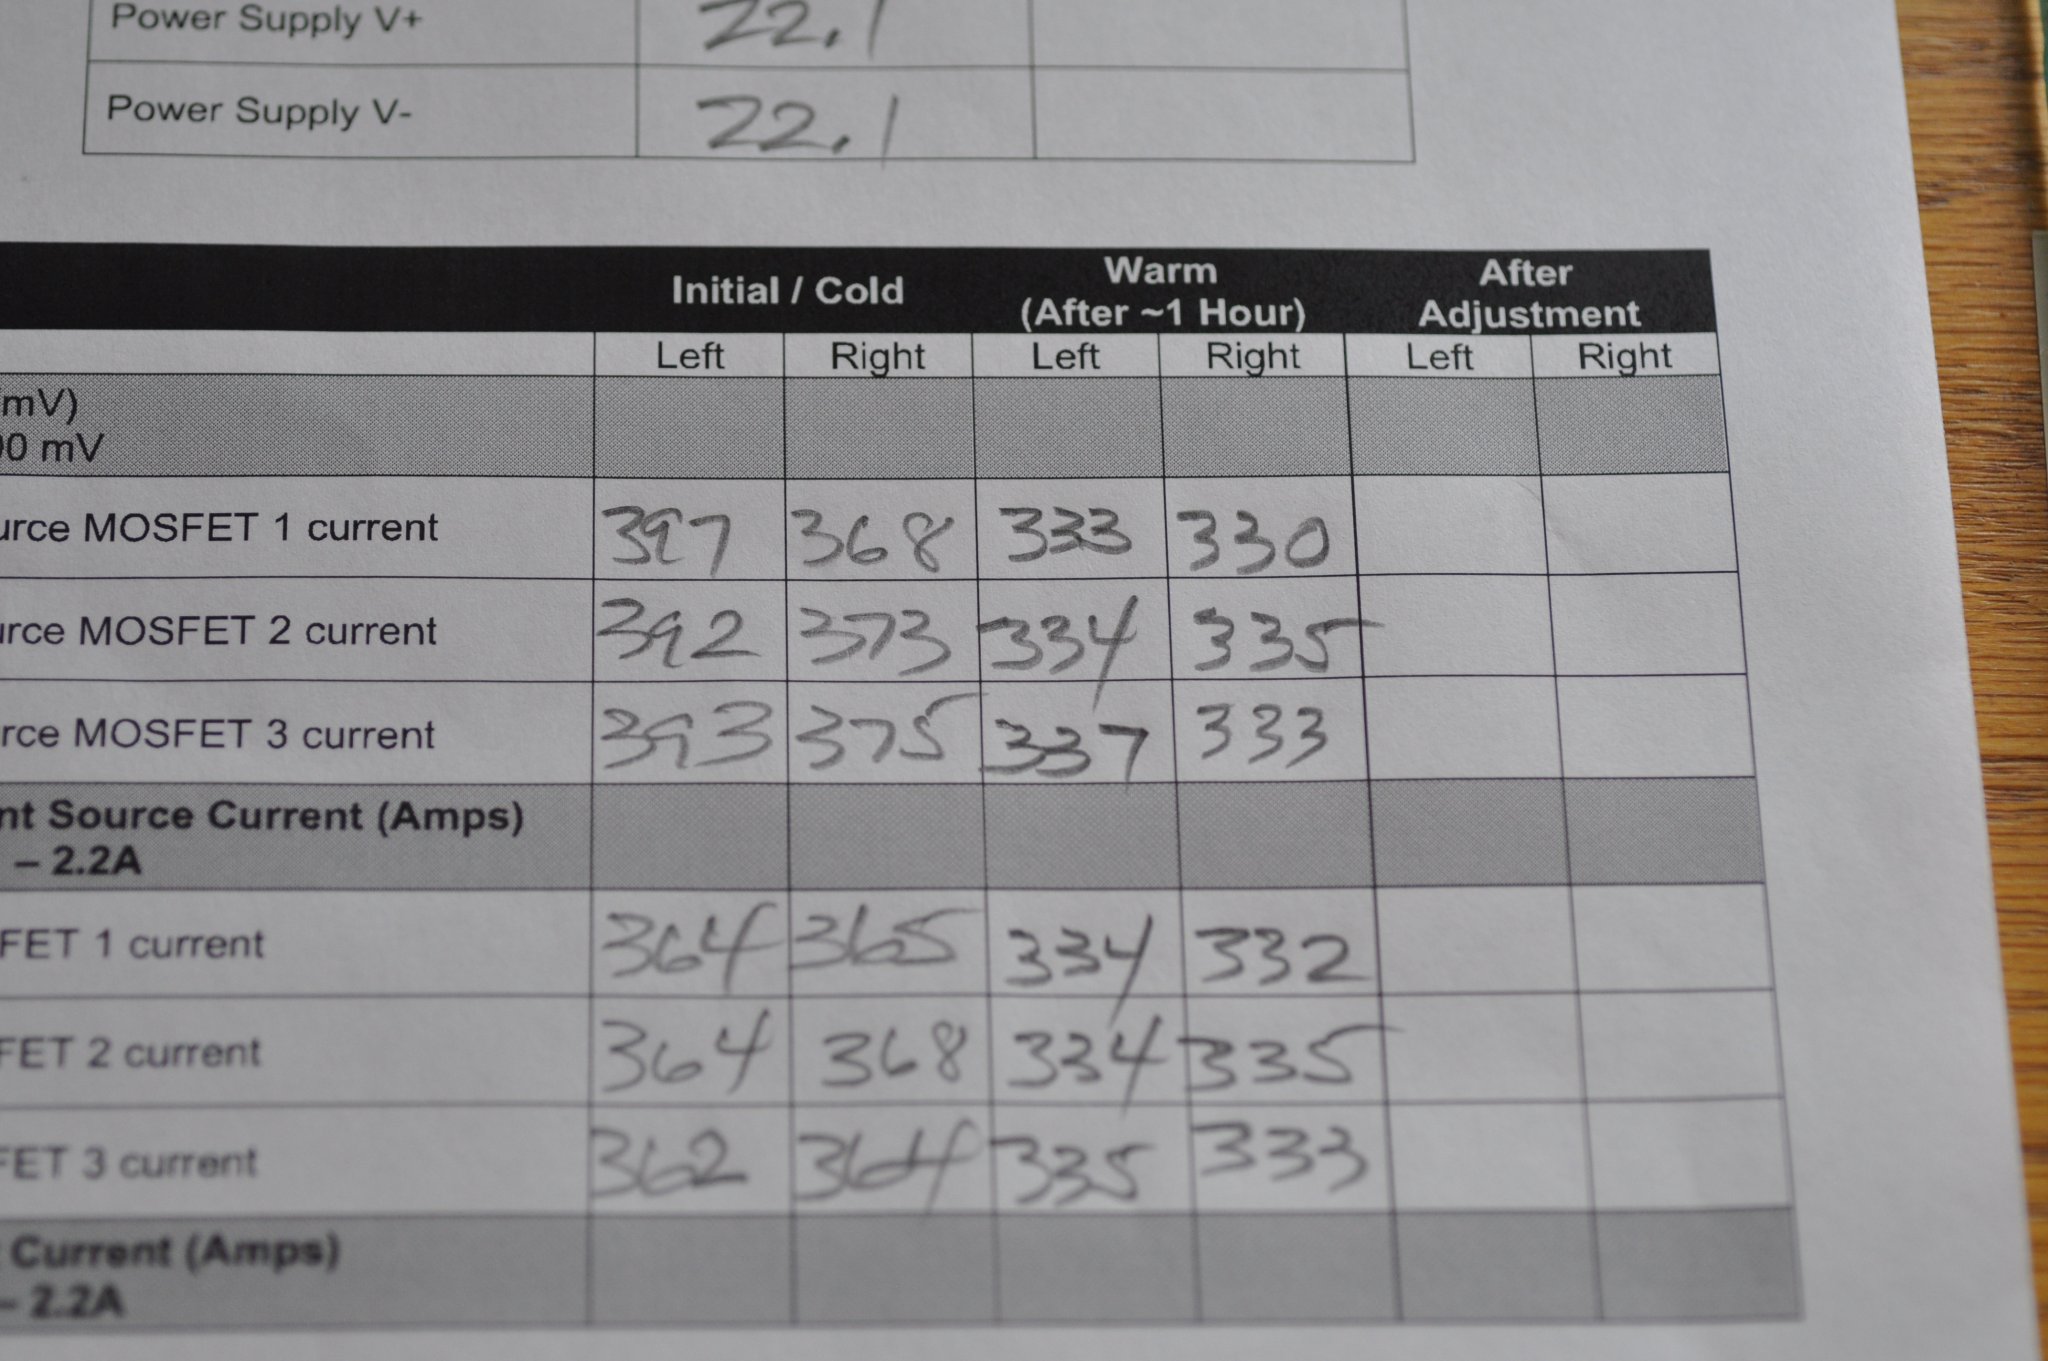 Power Supply V+ 22.1
Power Supply V- 22.1
Initial / Cold Warm (After ~1 Hour) After Adjustment
Left Right Left Right Left Right
(mV)
00 mV
urce MOSFET 1 current 397 368 333 330
urce MOSFET 2 current 392 373 334 335
rce MOSFET 3 current 393 375 337 333
nt Source Current (Amps)
– 2.2A
FET 1 current 364 365 334 332
FET 2 current 364 368 334 335
FET 3 current 362 364 335 333
Current (Amps)
– 2.2A